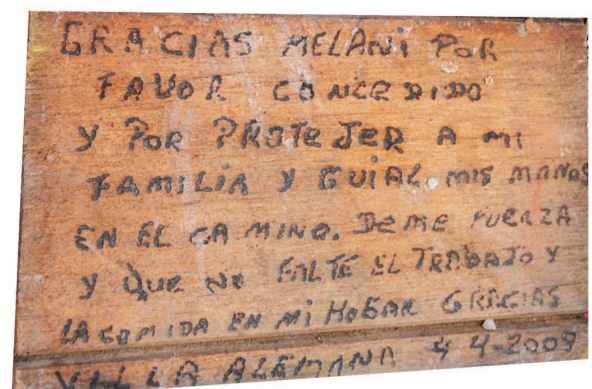 GRACIAS MELANI POR
FAVOR CONCEDIDO
Y POR PROTEJER A MI
FAMILIA Y GUIAR MIS MANOS
EN EL CAMINO. DEME FUERZA
Y QUE NO FALTE EL TRABAJO Y
LA COMIDA EN MI HOGAR GRACIAS
VILLA ALEMANA 4 4-2009